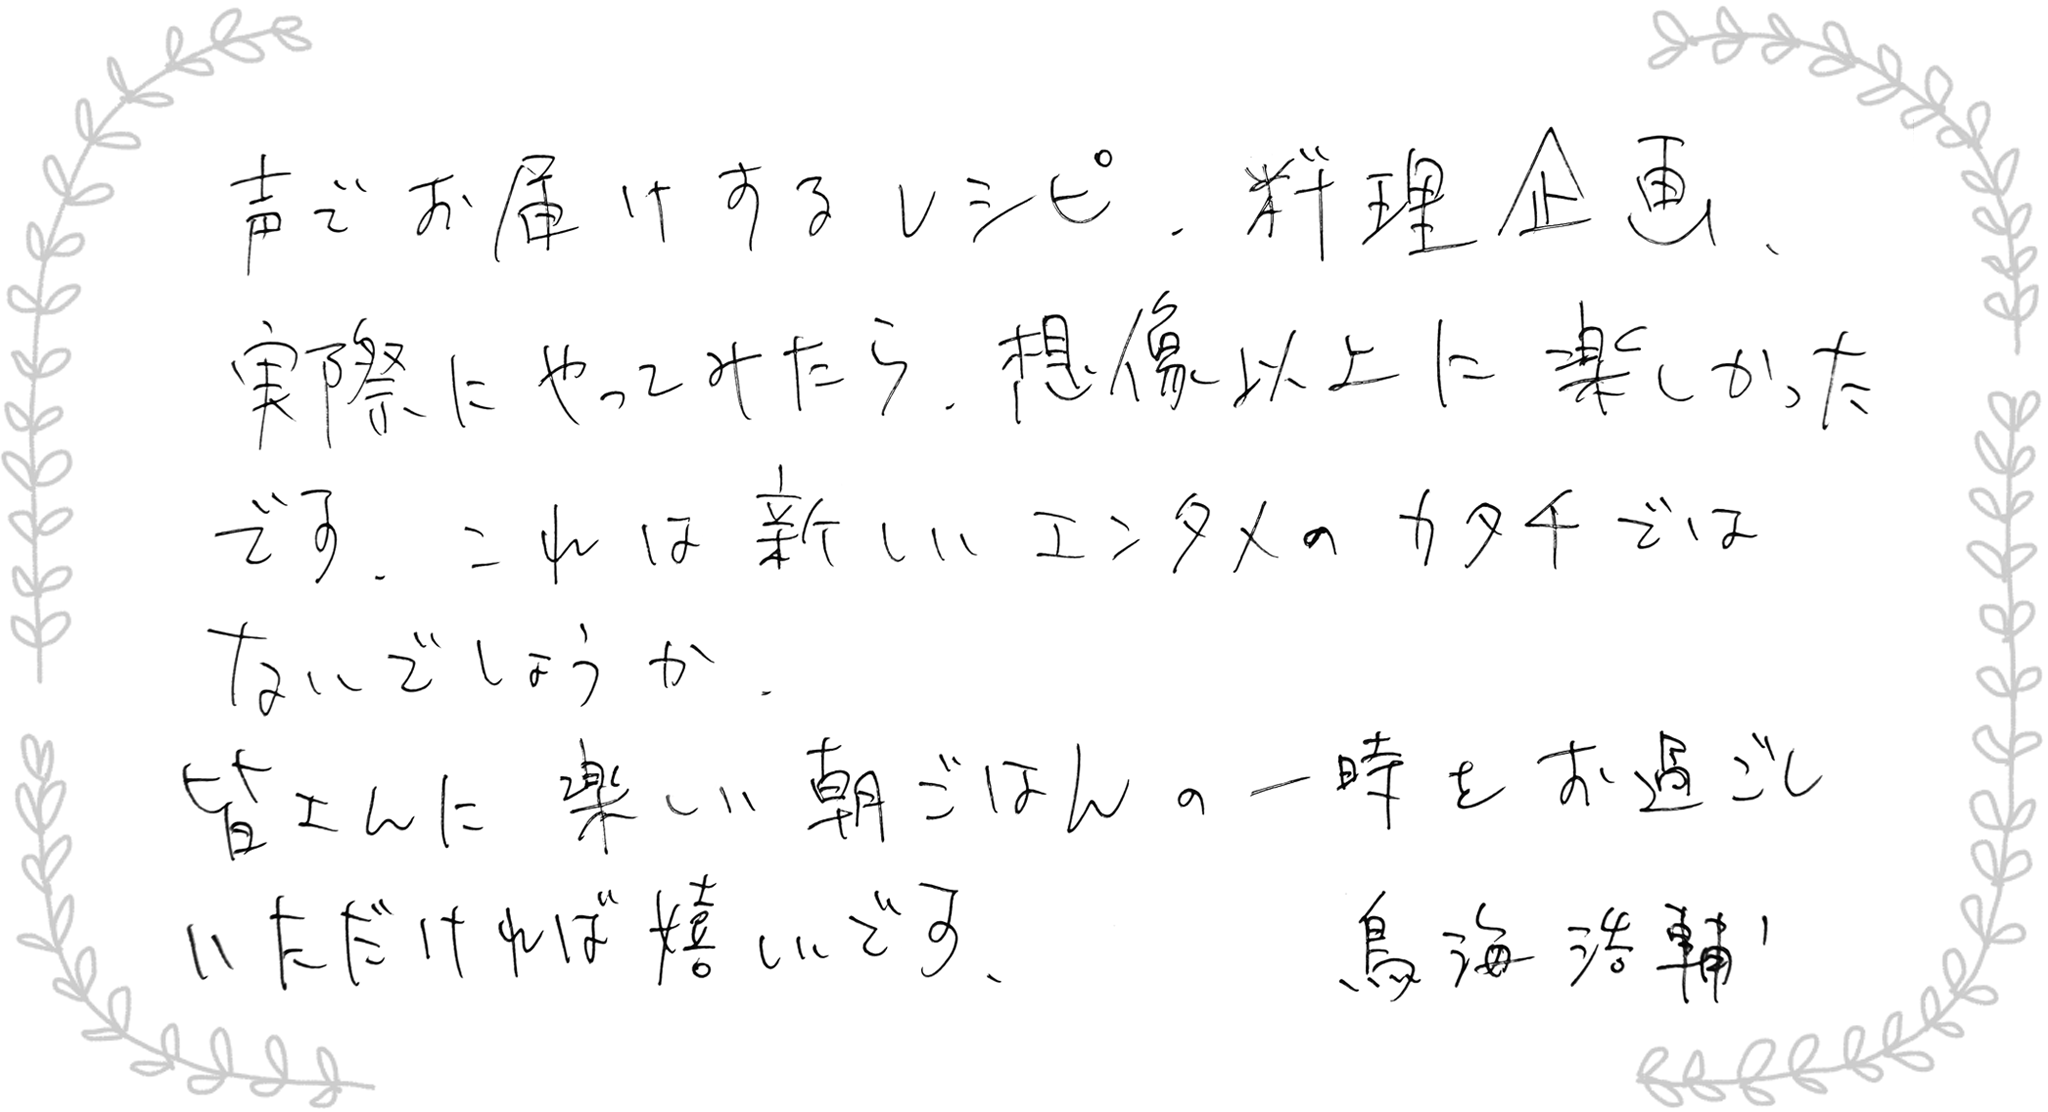 声でお届けするレシピ、料理企画、
実際にやってみたら、想像以上に楽しかった
です。これは新しいエンタメのカタチでは
ないでしょうか。
皆さんに楽しい朝ごはんの一時をお過ごし
いただければ嬉しいです。 鳥海浩輔